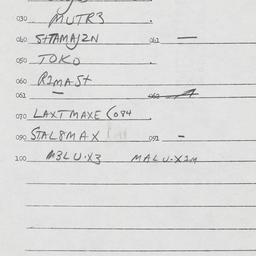 030 MUTR3 .
040 S+TAMAJ2N 041 —
050 TOKO .
060 R1MAS+
061 —
070 LAXTMAXE (084
090 STAL8MAX 091 -
100 M3LU·X3 MALU·X1M